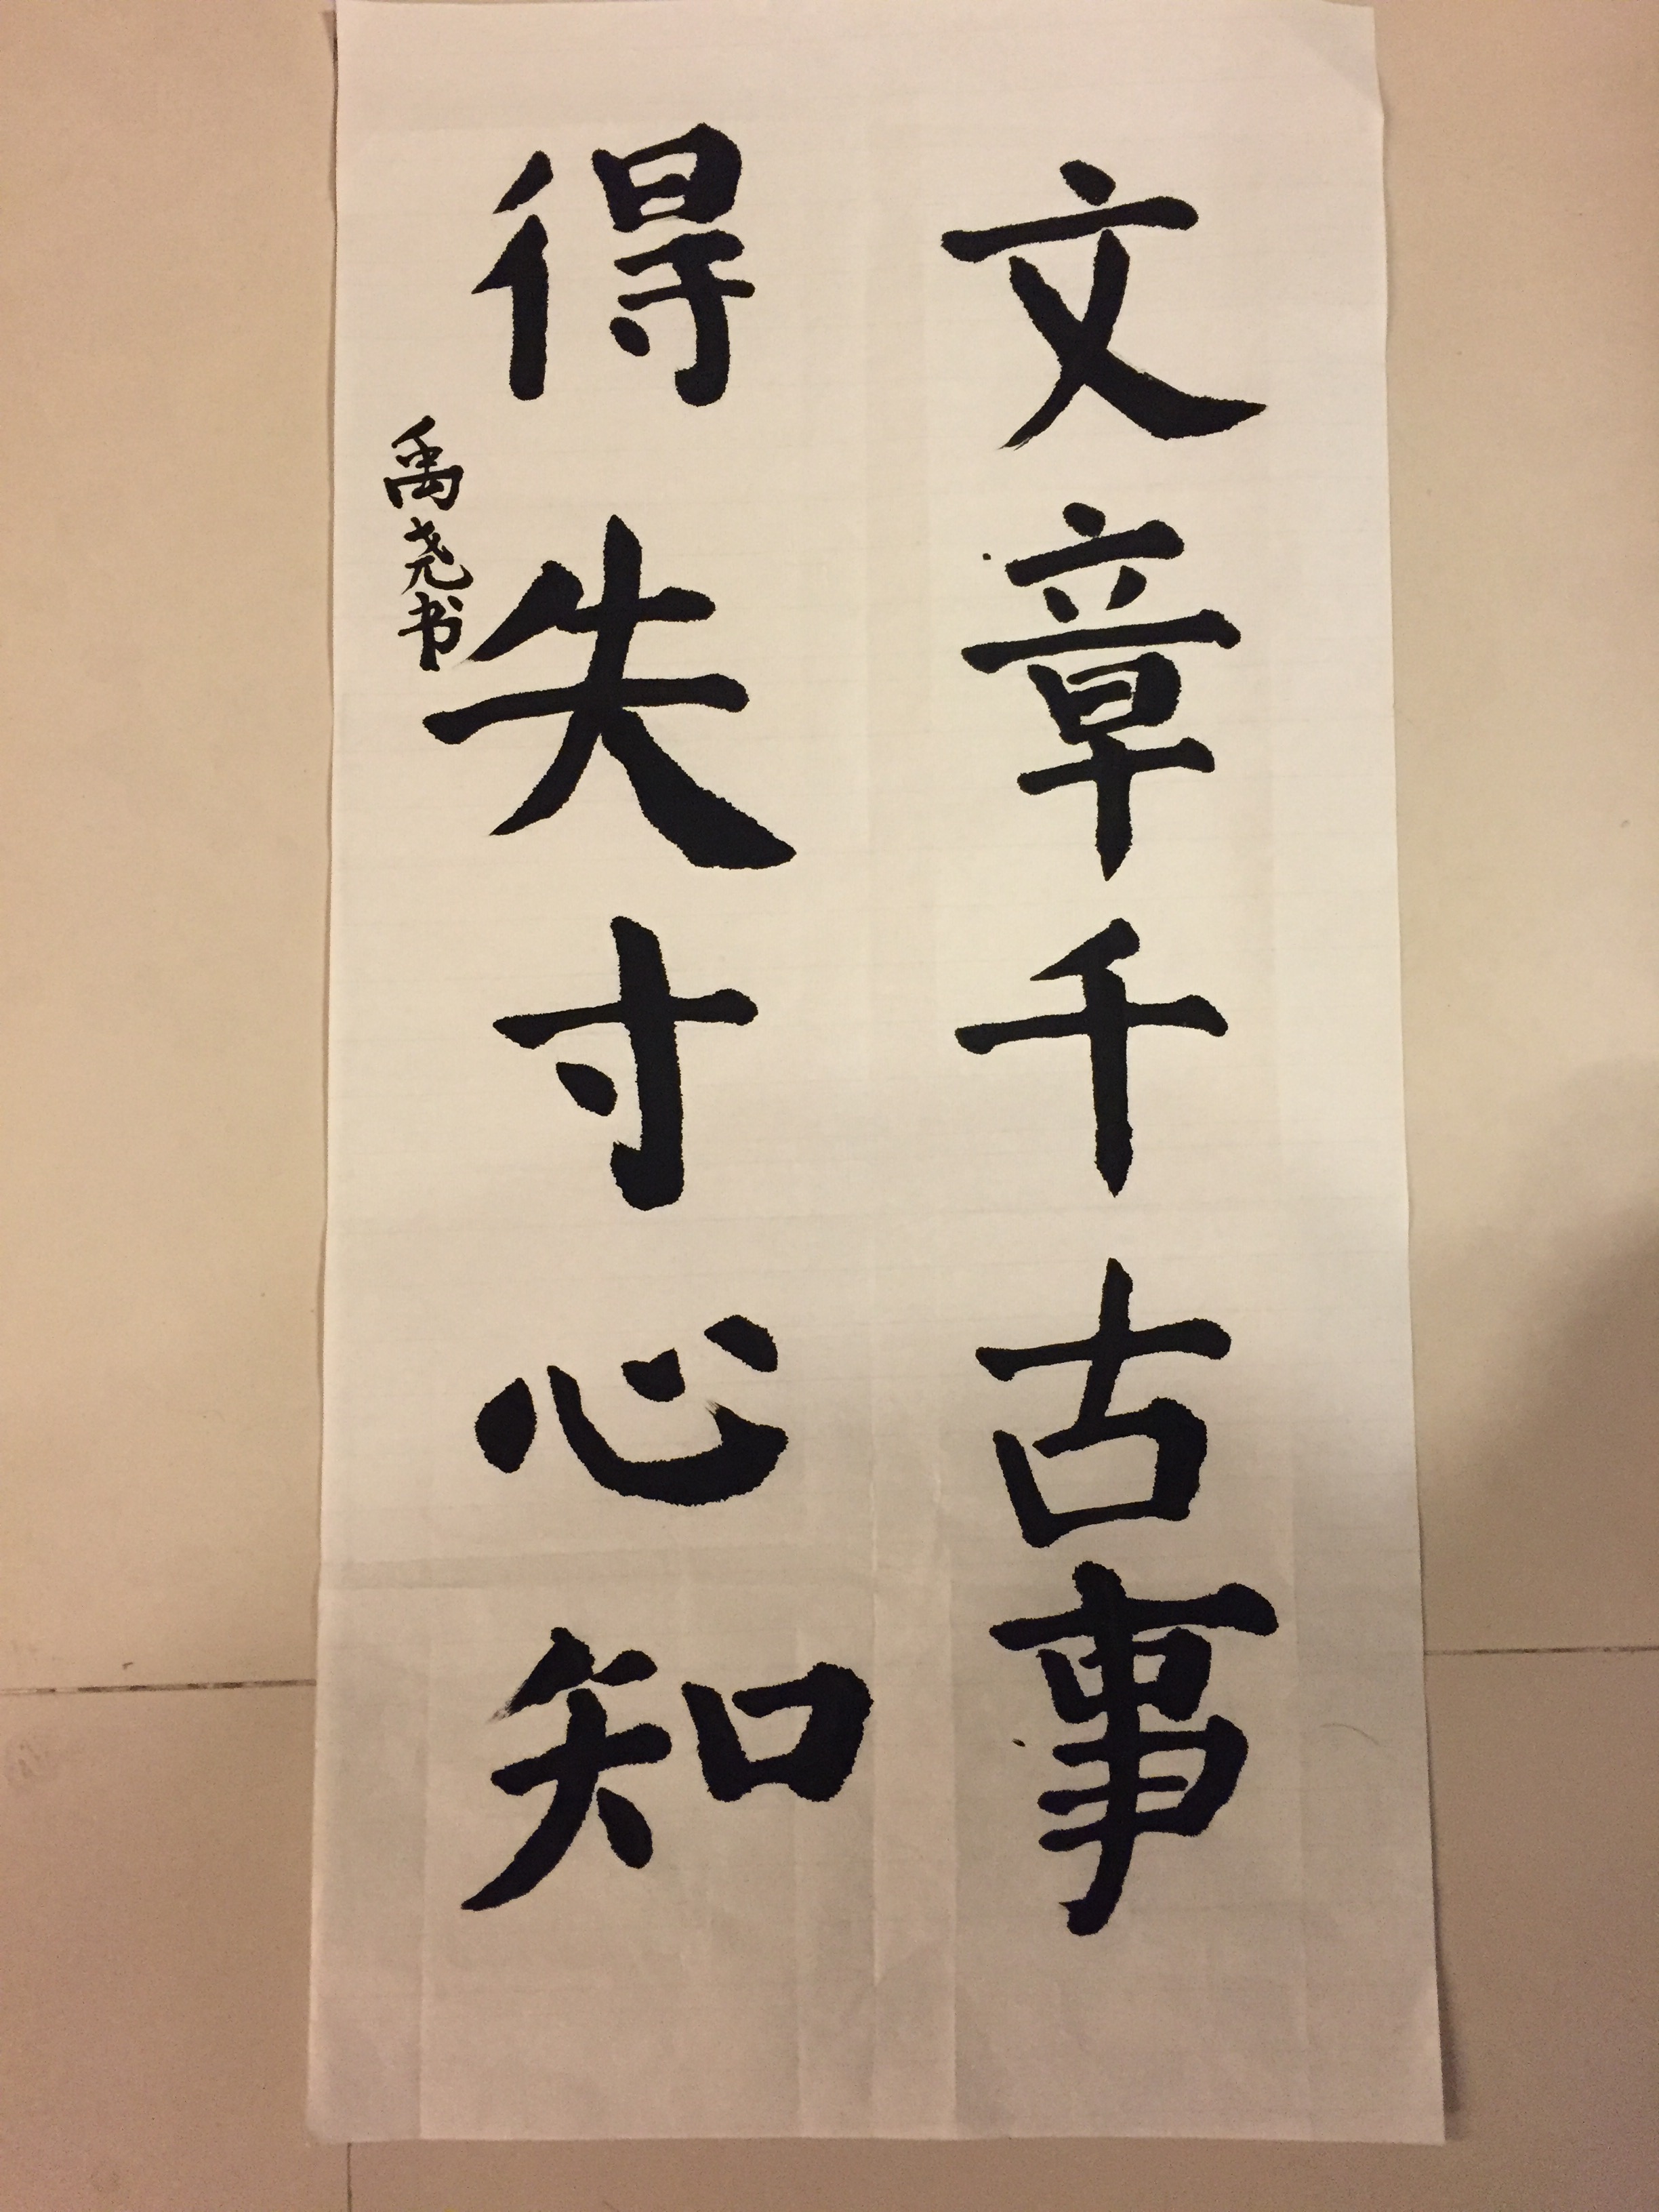 文章千古事
得失寸心知
禹尧书